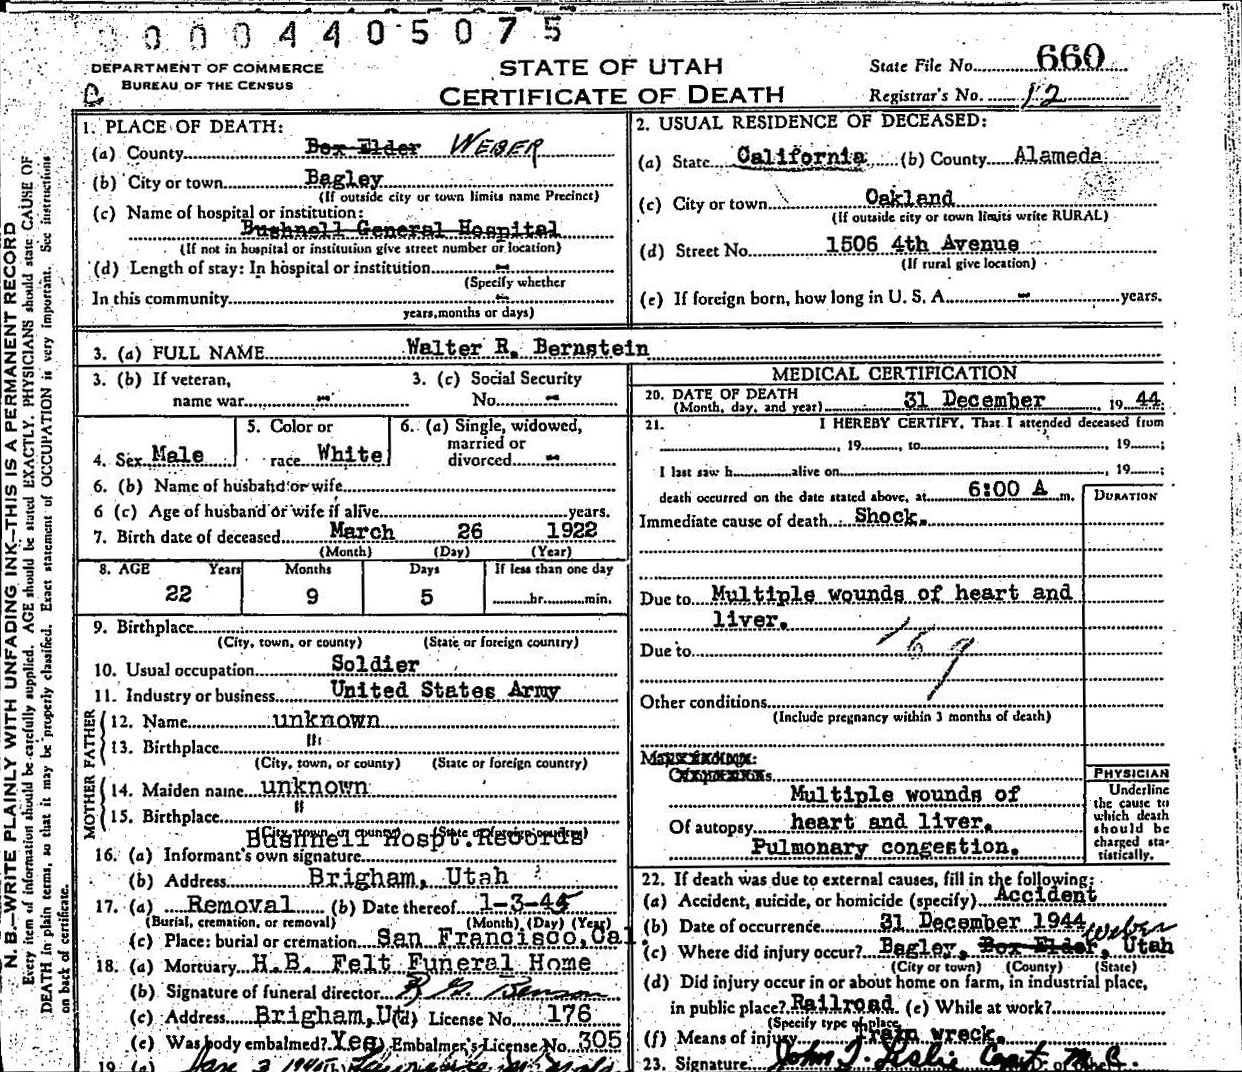 0 0 0 4 4 0 5 0 7 5
DEPARTMENT OF COMMERCE
BUREAU OF THE CENSUS
STATE OF UTAH
CERTIFICATE OF DEATH
State File No. 660
Registrar's No. 12
N. B.—WRITE PLAINLY WITH UNFADING INK—THIS IS A PERMANENT RECORD
Every item of information should be carefully supplied. AGE should be stated EXACTLY. PHYSICIANS should state CAUSE OF
DEATH in plain terms, so that it may be properly classified. Exact statement of OCCUPATION is very important. See instructions
on back of certificate.
1. PLACE OF DEATH:
(a) County Box Elder WEBER
(b) City or town Bagley
(If outside city or town limits name Precinct)
(c) Name of hospital or institution:
Bushnell General Hospital
(If not in hospital or institution give street number or location)
(d) Length of stay: In hospital or institution -
(Specify whether
In this community -
years, months or days)
2. USUAL RESIDENCE OF DECEASED:
(a) State California (b) County Alameda
(c) City or town Oakland
(If outside city or town limits write RURAL)
(d) Street No. 1506 4th Avenue
(If rural give location)
(e) If foreign born, how long in U. S. A. - years.
3. (a) FULL NAME Walter R. Bernstein
3. (b) If veteran,
name war -
3. (c) Social Security
No. -
4. Sex Male
5. Color or
race White
6. (a) Single, widowed,
married or
divorced -
6. (b) Name of husband or wife
6 (c) Age of husband or wife if alive years.
7. Birth date of deceased March 26 1922
(Month) (Day) (Year)
8. AGE Years Months Days If less than one day
22 9 5 hr. min.
9. Birthplace
(City, town, or county) (State or foreign country)
10. Usual occupation Soldier
11. Industry or business United States Army
FATHER
12. Name unknown
13. Birthplace "
(City, town, or county) (State or foreign country)
MOTHER
14. Maiden name unknown
15. Birthplace "
(City, town, or county) (State or foreign country)
Bushnell Hospt. Records
16. (a) Informant's own signature
(b) Address Brigham, Utah
17. (a) Removal (b) Date thereof 1-3-45
(Burial, cremation, or removal) (Month) (Day) (Year)
(c) Place: burial or cremation San Francisco, Cal.
18. (a) Mortuary H.B. Felt Funeral Home
(b) Signature of funeral director
(c) Address Brigham, Ut (d) License No. 176
(e) Was body embalmed? Yes Embalmer's License No. 305
19. (a) Jan 3 1945
MEDICAL CERTIFICATION
20. DATE OF DEATH
(Month, day, and year) 31 December, 19 44
21. I HEREBY CERTIFY, That I attended deceased from
, 19 , to , 19 ;
I last saw h alive on , 19 ;
death occurred on the date stated above, at 6:00 A m.
DURATION
Immediate cause of death Shock.
Due to Multiple wounds of heart and
liver.
Due to 169
Other conditions
(Include pregnancy within 3 months of death)
PHYSICIAN
Underline
the cause to
which death
should be
charged sta-
tistically.
Multiple wounds of
Of autopsy heart and liver.
Pulmonary congestion.
22. If death was due to external causes, fill in the following:
(a) Accident, suicide, or homicide (specify) Accident
(b) Date of occurrence 31 December 1944
(c) Where did injury occur? Bagley, Box Elder, Weber Utah
(City or town) (County) (State)
(d) Did injury occur in or about home on farm, in industrial place,
in public place? Railroad (e) While at work?
(Specify type of place
(f) Means of injury Train wreck.
23. Signature John J. Leslie Capt. M.C.